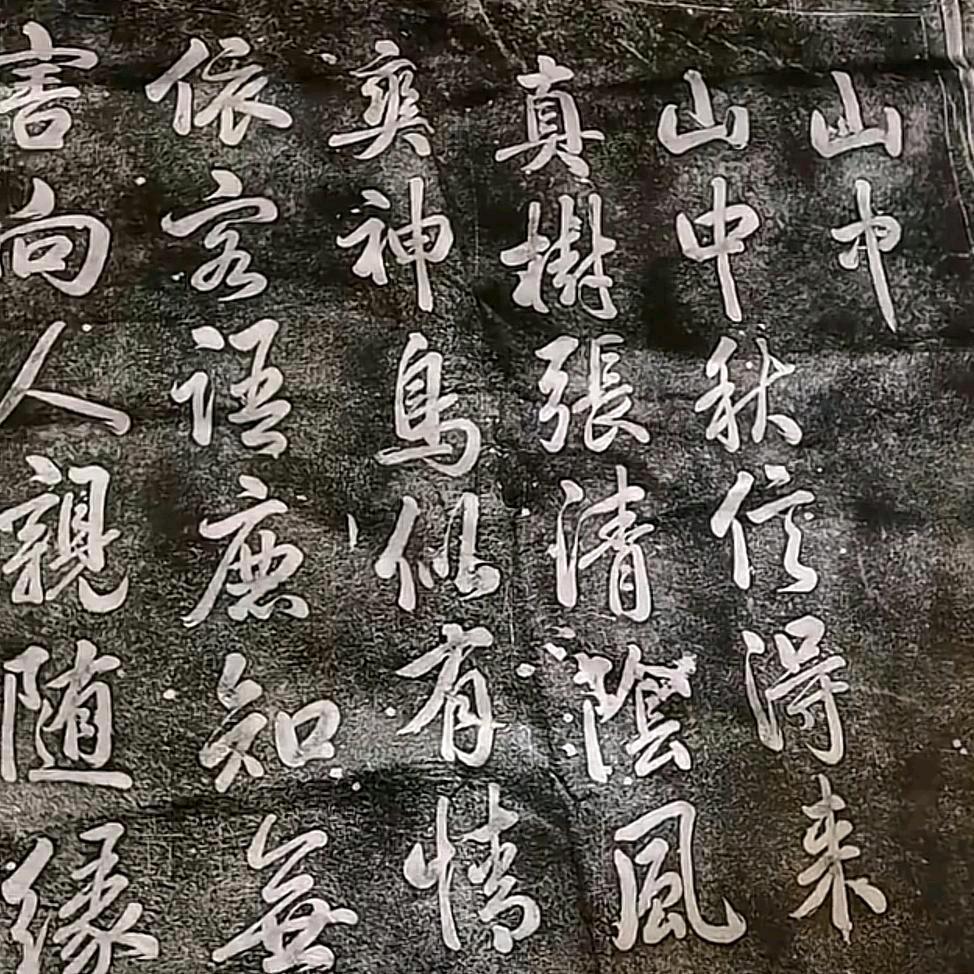 山中
山中秋信得来
真樹張清陰風
爽神鳥似有情
依客語鹿知無
害向人親随緣